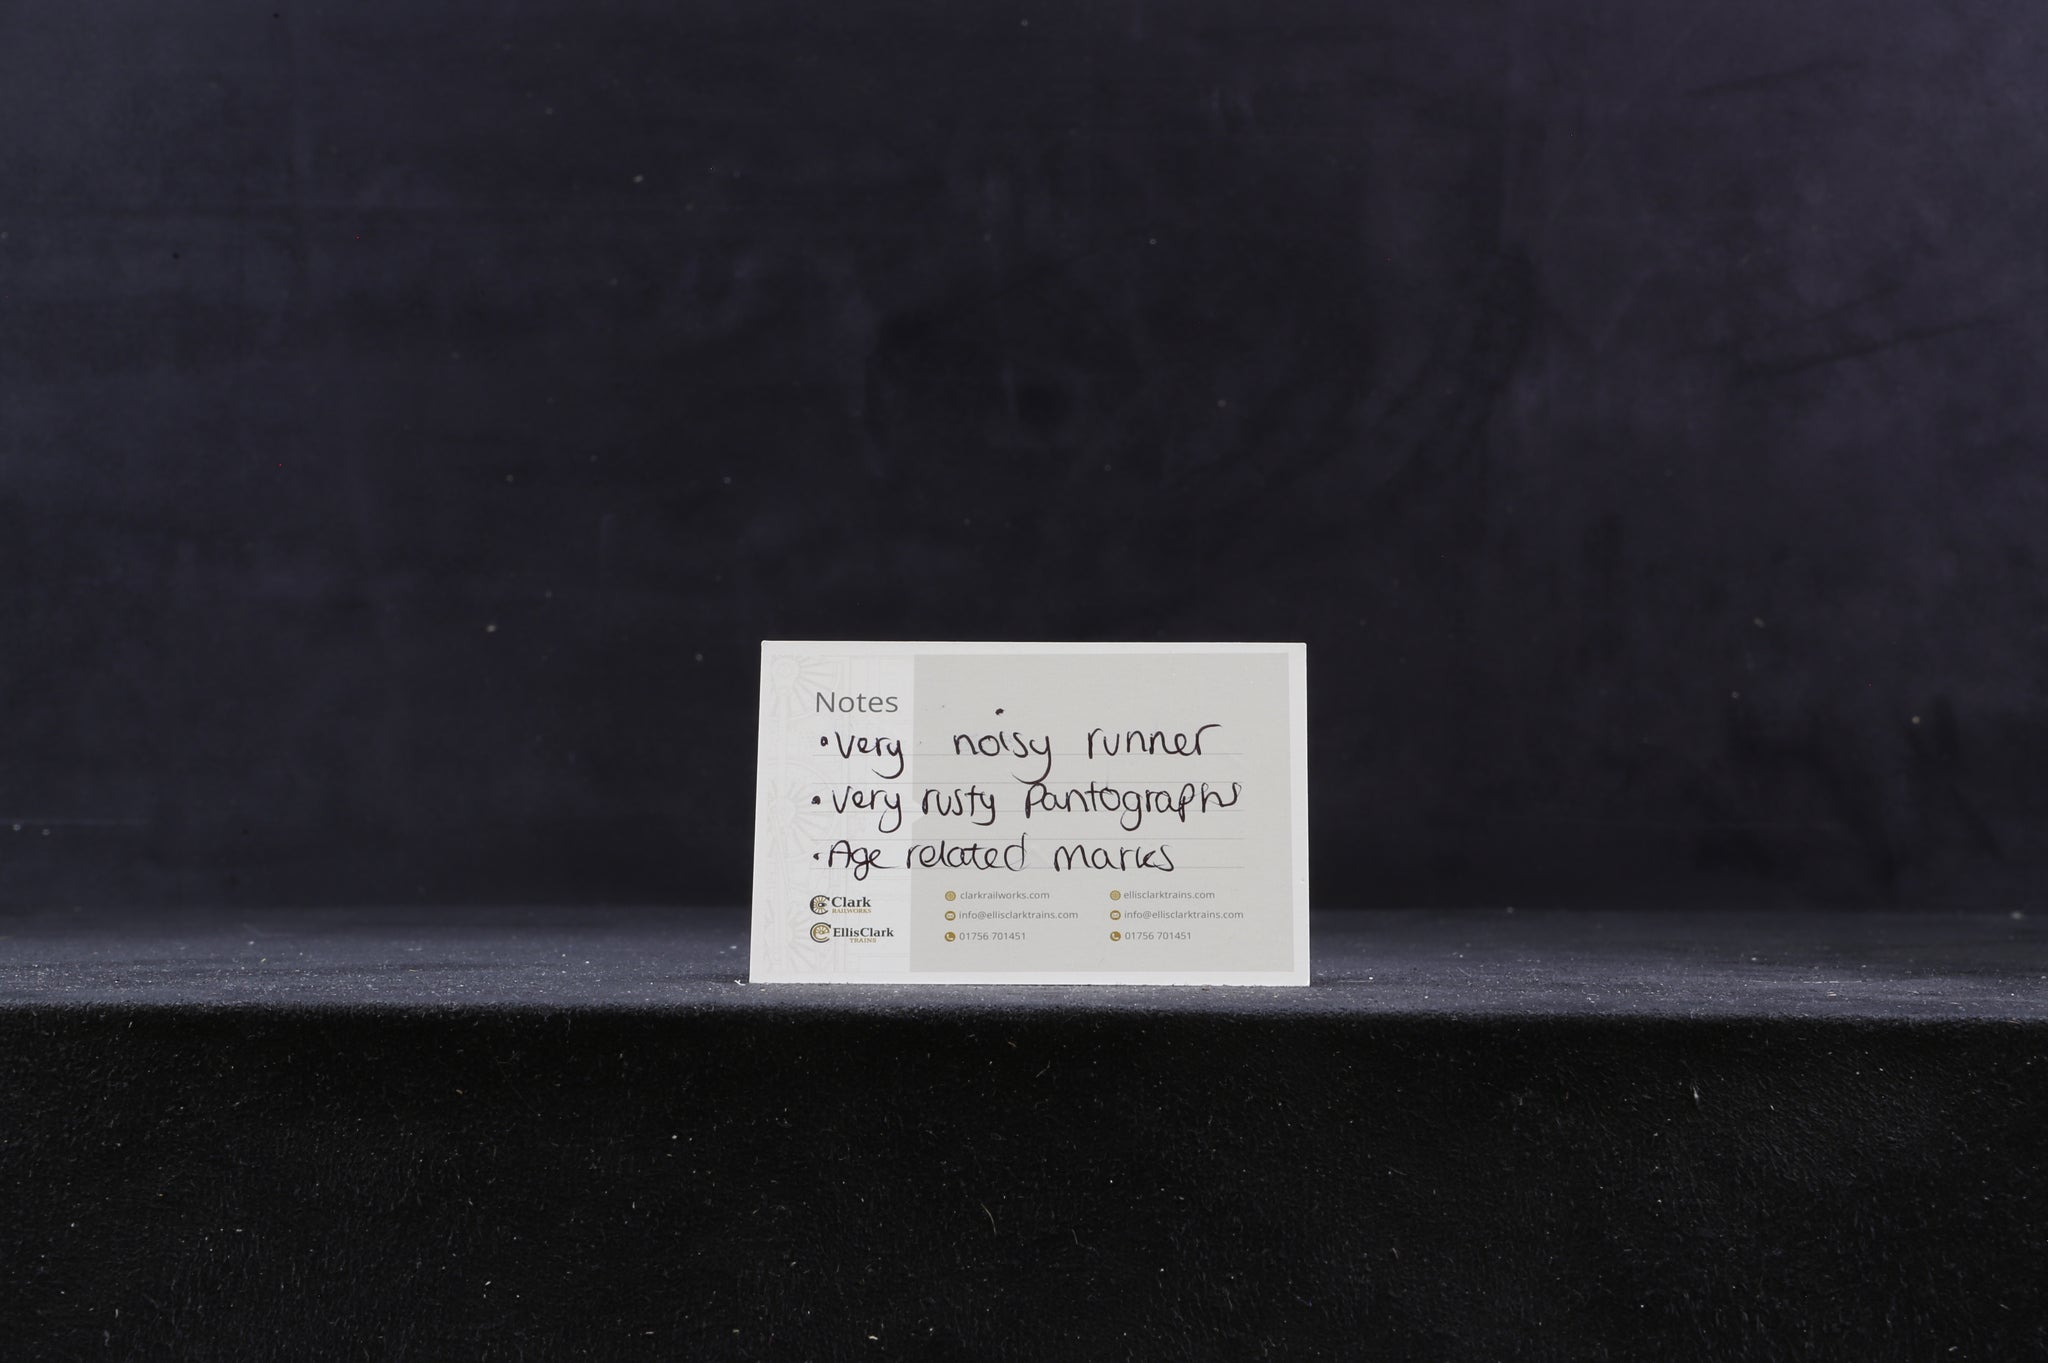 Notes
• Very noisy runner
• Very rusty pantographs
• Age related marks
Clark
RAILWORKS
clarkrailworks.com
ellisclarktrains.com
info@ellisclarktrains.com
info@ellisclarktrains.com
EllisClark
TRAINS
01756 701451
01756 701451